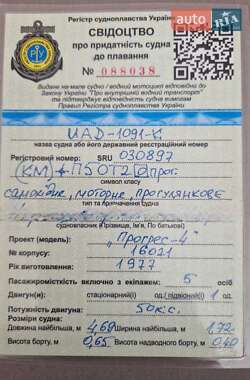 Регістр судноплавства України
auto RIA
СВІДОЦТВО
про придатність судна
до плавання
№ 088038
Видане на мале судно / водний мотоцикл відповідно до
Закону України "Про внутрішній водний транспорт"
та підтверджує відповідність судна вимогам
Правил Регістра судноплавства України
UAD-1091-К
назва судна або його державний реєстраційний номер
Регістровий номер: SRU 030897
символ класу
самохідне, моторне, прогулянкове
тип та призначення судна
судновласник (Прізвище, Ім'я, По батькові)
Проект (модель): „Прогрес-4"
№ корпусу: 16021
Рік виготовлення: 1977
Пасажиромісткість включно з екіпажем: 5 осіб
Двигун(и): стаціонарний(і) од./підвісний(і) 1 од.
Потужність двигуна: 50к.с.
Довжина найбільша, м 4,69 Ширина найбільша, м 1,72
Висота борту, м 0,65 Висота надводного борту, м 0,40